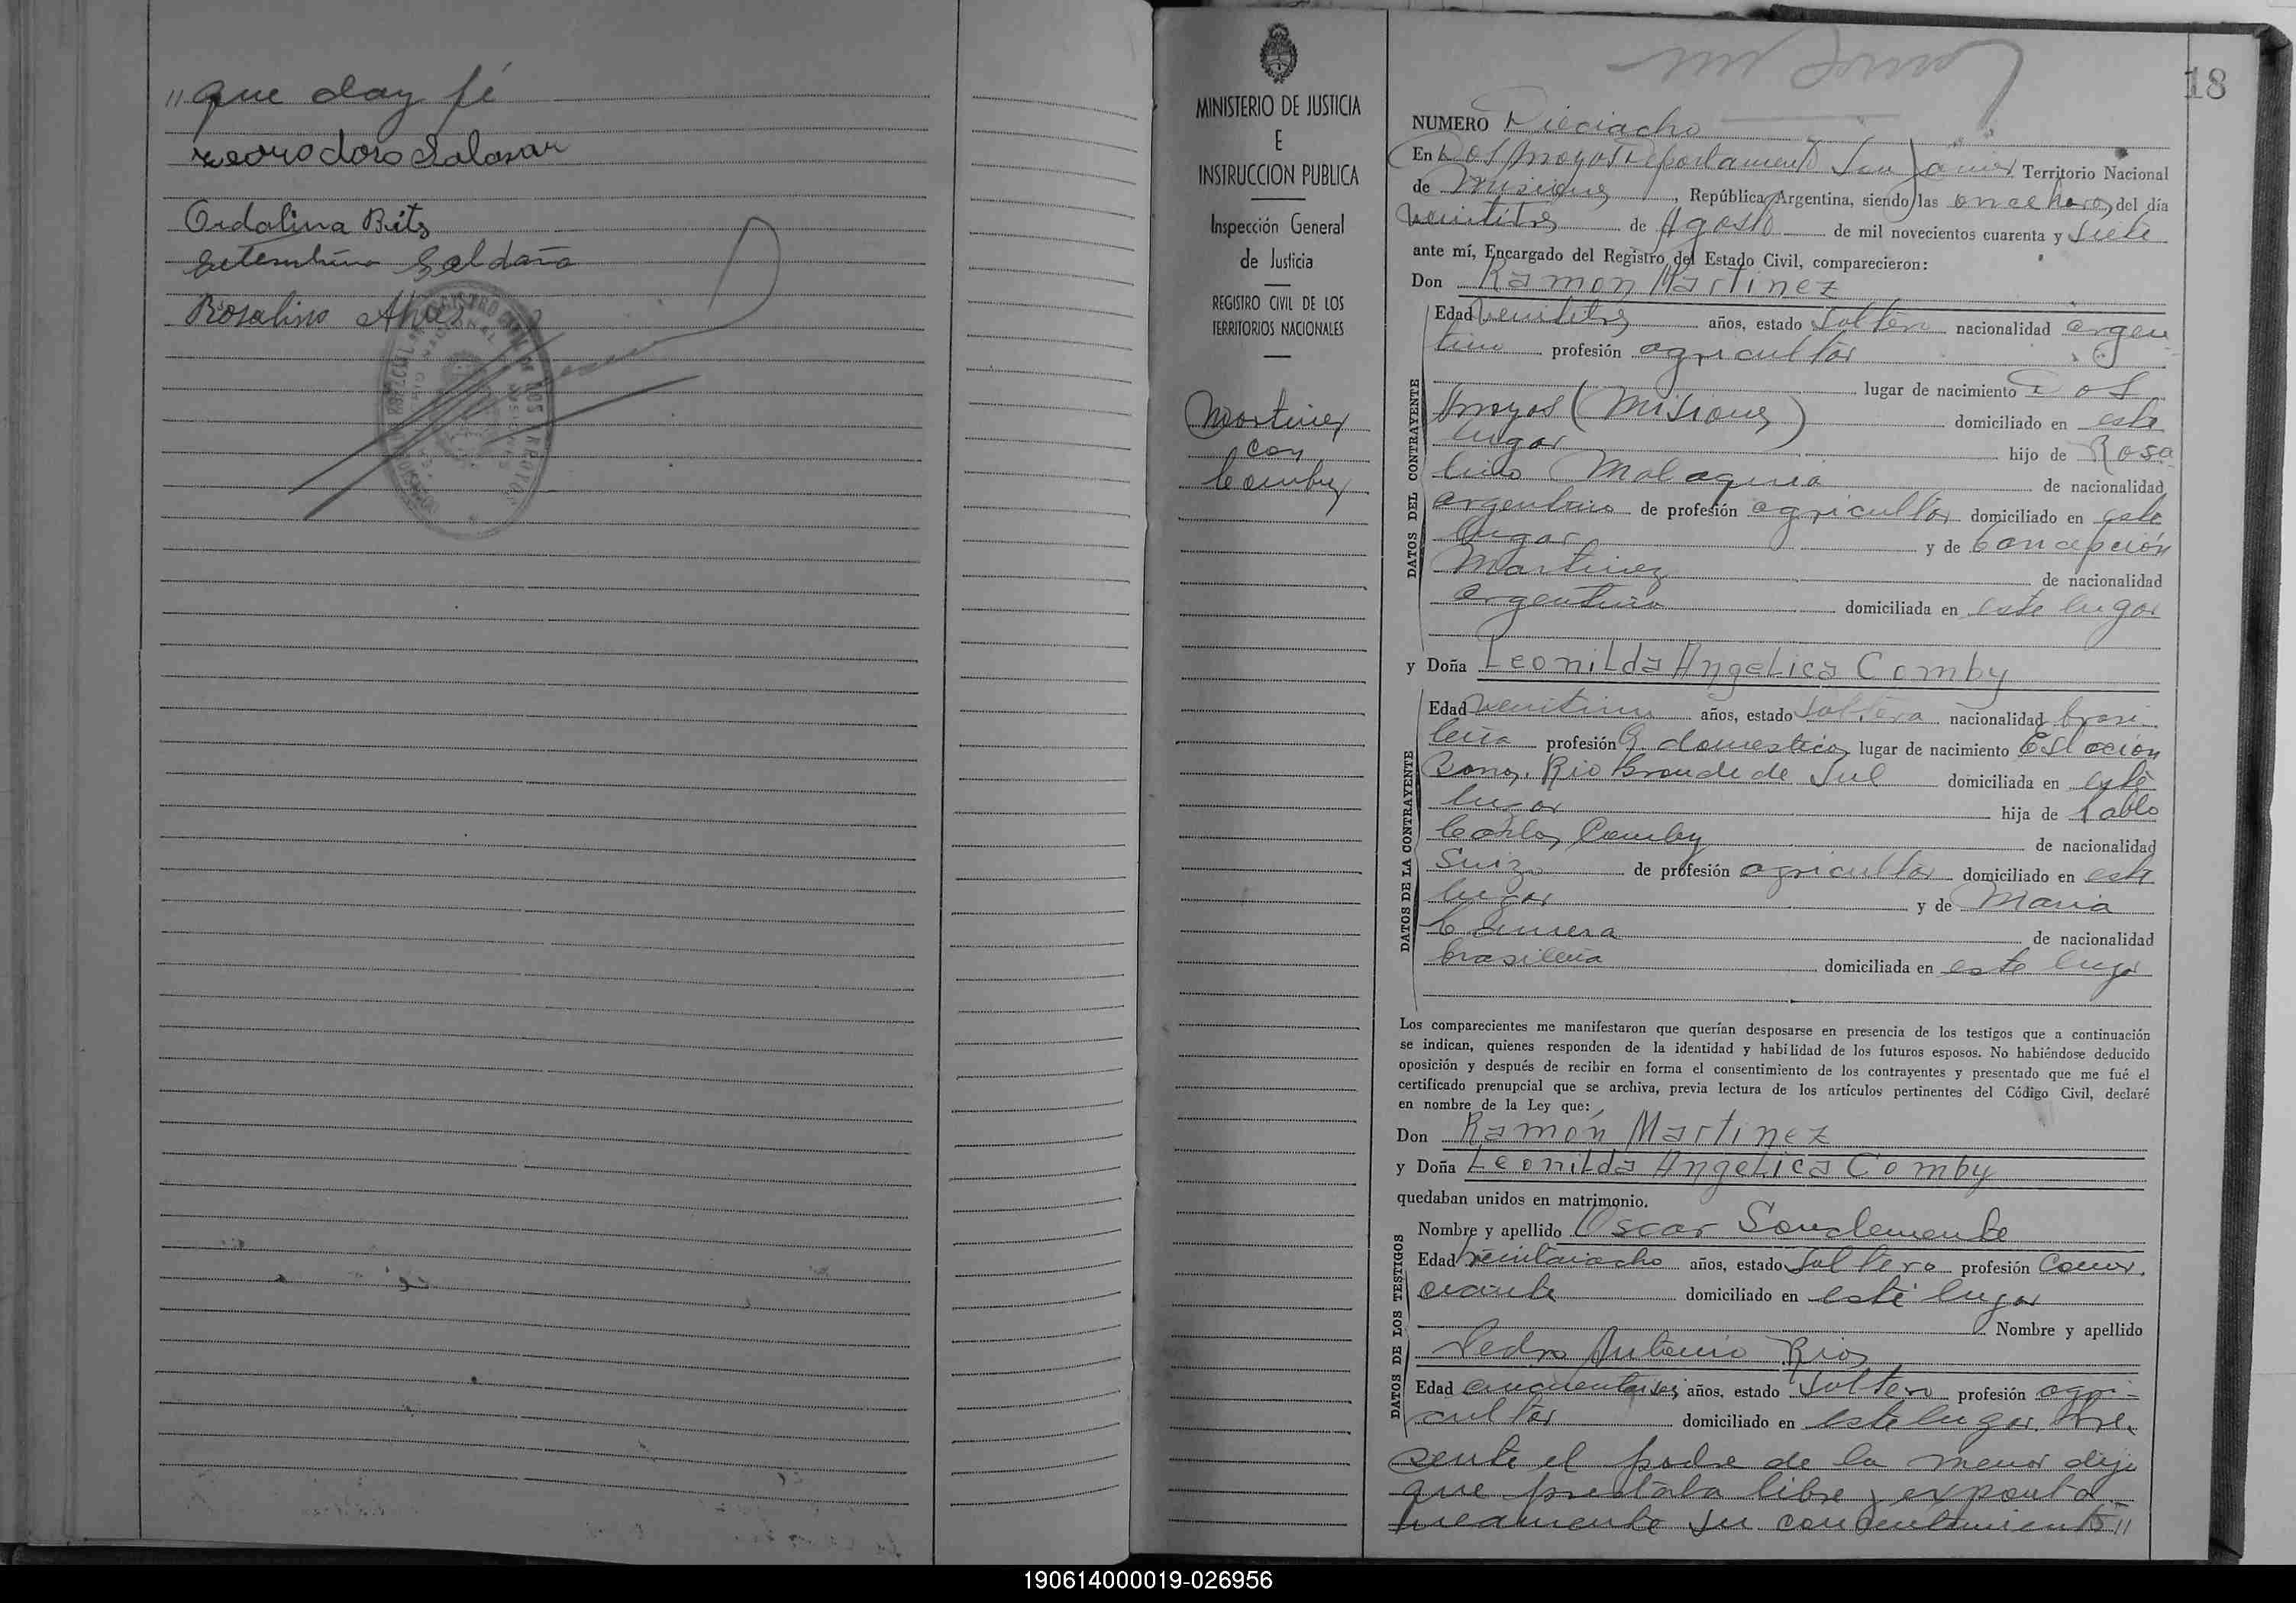 " que doy fé
Teodoro Salazar
Ordalina Brits
Setembrino Saldaña
Rosalino Alves
MINISTERIO DE JUSTICIA
E
INSTRUCCION PUBLICA
Inspección General
de Justicia
REGISTRO CIVIL DE LOS
TERRITORIOS NACIONALES
Martinez
con
Comby
18
NUMERO Dieciocho
En Dos Arroyos Departamento San Javier Territorio Nacional
de Misiones, República Argentina, siendo las once horas del día
veintitres de Agosto de mil novecientos cuarenta y siete
ante mí, Encargado del Registro del Estado Civil, comparecieron:
Don Ramon Martinez
DATOS DEL CONTRAYENTE
Edad veintitres años, estado soltero nacionalidad argen
tino profesión agricultor
lugar de nacimiento Dos
Arroyos (Misiones) domiciliado en este
lugar hijo de Rosa
lino Malaquia de nacionalidad
argentino de profesión agricultor domiciliado en este
lugar y de Concepción
Martinez de nacionalidad
argentina domiciliada en este lugar
y Doña Leonilda Angelica Comby
DATOS DE LA CONTRAYENTE
Edad años, estado soltera nacionalidad brasi
leña profesión q. domesticos lugar de nacimiento Estacion
Rio Grande de Sul domiciliada en este
lugar hija de Pablo
Carlos Comby de nacionalidad
Suizo de profesión agricultor domiciliado en este
lugar y de Maria
de nacionalidad
brasileña domiciliada en este lugar
Los comparecientes me manifestaron que querían desposarse en presencia de los testigos que a continuación
se indican, quienes responden de la identidad y habilidad de los futuros esposos. No habiéndose deducido
oposición y después de recibir en forma el consentimiento de los contrayentes y presentado que me fué el
certificado prenupcial que se archiva, previa lectura de los artículos pertinentes del Código Civil, declaré
en nombre de la Ley que:
Don Ramón Martinez
y Doña Leonilda Angelica Comby
quedaban unidos en matrimonio.
DATOS DE LOS TESTIGOS
Nombre y apellido Oscar
Edad años, estado soltero profesión comer
ciante domiciliado en este lugar
Nombre y apellido
Pedro Antonio Rios
Edad cincuentaiseis años, estado soltero profesión agri=
cultor domiciliado en este lugar. Pre
sente el padre de la menor dijo
que prestaba libre y expontá
neamente su concentimiento"
190614000019-026956